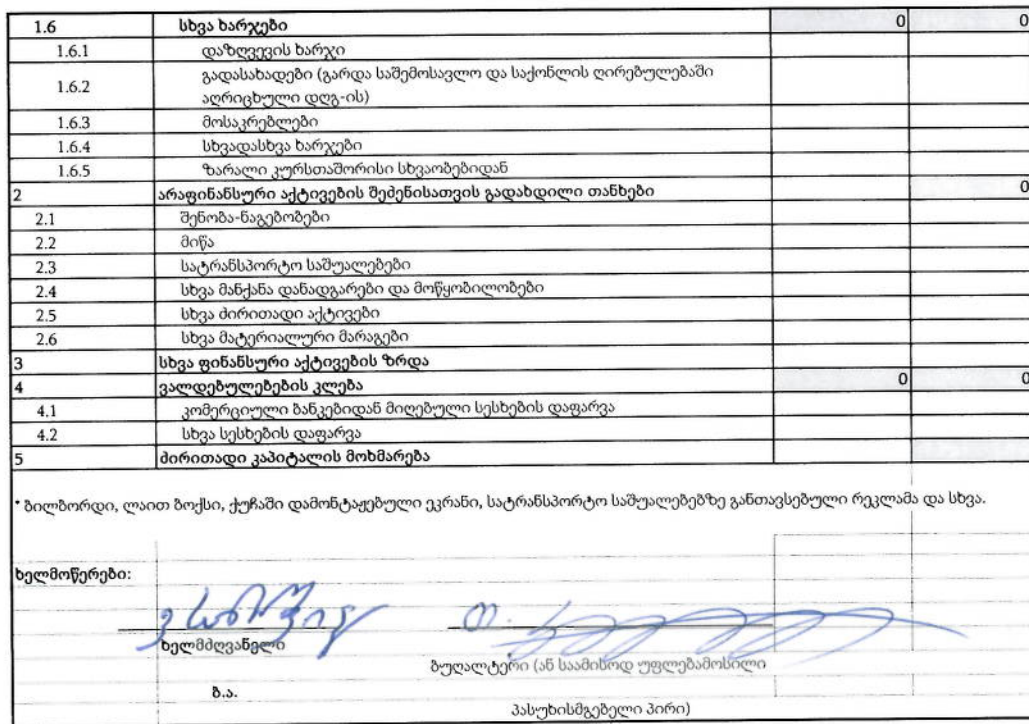 1.6 სხვა ხარჯები 0 0
1.6.1 დაზღვევის ხარჯი
1.6.2 გადასახადები (გარდა საშემოსავლო და საქონლის ღირებულებაში
აღრიცხული დღგ-ის)
1.6.3 მოსაკრებლები
1.6.4 სხვადასხვა ხარჯები
1.6.5 ზარალი კურსთაშორისი სხვაობებიდან
2 არაფინანსური აქტივების შეძენისათვის გადახდილი თანხები 0
2.1 შენობა-ნაგებობები
2.2 მიწა
2.3 სატრანსპორტო საშუალებები
2.4 სხვა მანქანა დანადგარები და მოწყობილობები
2.5 სხვა ძირითადი აქტივები
2.6 სხვა მატერიალური მარაგები
3 სხვა ფინანსური აქტივების ზრდა
4 ვალდებულებების კლება 0 0
4.1 კომერციული ბანკებიდან მიღებული სესხების დაფარვა
4.2 სხვა სესხების დაფარვა
5 ძირითადი კაპიტალის მოხმარება
* ბილბორდი, ლაით ბოქსი, ქუჩაში დამონტაჟებული ეკრანი, სატრანსპორტო საშუალებებზე განთავსებული რეკლამა და სხვა.
ხელმოწერები:
ხელმძღვანელი
ბუღალტერი (ან საამისოდ უფლებამოსილი
ბ.ა.
პასუხისმგებელი პირი)